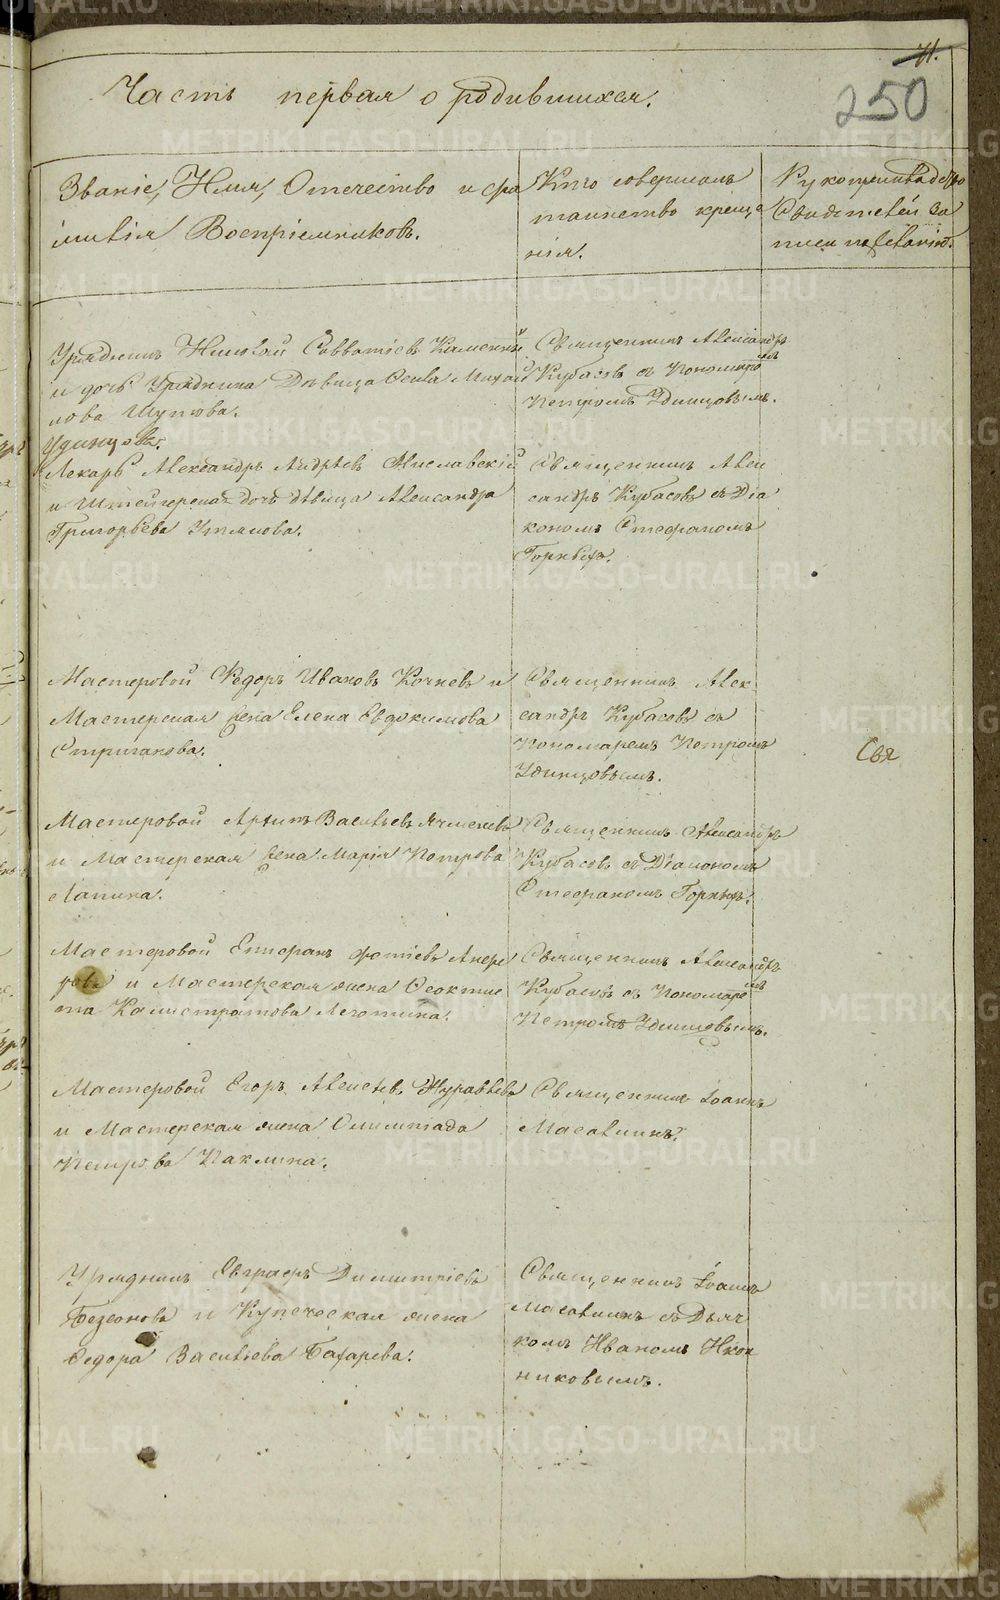 71.
250
Часть первая о родившихся.
Званіе, Имя, Отечество и фа
милія Воспріемниковъ.
Кто совершалъ
таинство креще
нія.
Рукоприкладство
Свидѣтелей за
писи по желанію.
Урядникъ Николай Савватіевъ
и дочь Урядника Дѣвица Михай
лова Шупова.
Священникъ Александръ
Кубасовъ съ Пономаремъ
Петромъ Удинцовымъ.
Удинцова.
Лекарь Александръ Андрѣевъ Миславскій
и Штейгерская дочь дѣвица Александра
Григорьева
Священникъ Алек
сандръ Кубасовъ съ Діа
кономъ Стефаномъ
Горныхъ.
Мастеровой Ѳедоръ Ивановъ Кочневъ и
Мастерская жена Елена Евдокимова
Стриганова.
Священникъ Алек
сандръ Кубасовъ съ
Пономаремъ Петромъ
Удинцовымъ.
Свя
Мастеровой Васильевъ Ячменевъ
и Мастерская жена Марія Петрова
Лапина.
Священникъ Александръ
Кубасовъ съ Діакономъ
Стефаномъ Горныхъ.
Мастеровой Фотіевъ
и Мастерская жена Ѳеоктис
та Калистратова Леготина.
Священникъ Александръ
Кубасовъ съ Пономаремъ
Петромъ Удинцовымъ.
Мастеровой Егоръ Алексѣевъ Журавлевъ
и Мастерская жена Олимпіада
Петрова Паклина.
Священникъ Іоаннъ
Масловъ
Урядникъ Евграфъ Димитріевъ
и Купеческая жена
Ѳедора Васильева
Священникъ Іоаннъ
съ Дьяч
комъ Иваномъ Икон
никовымъ.
METRIKI.GASO-URAL.RU